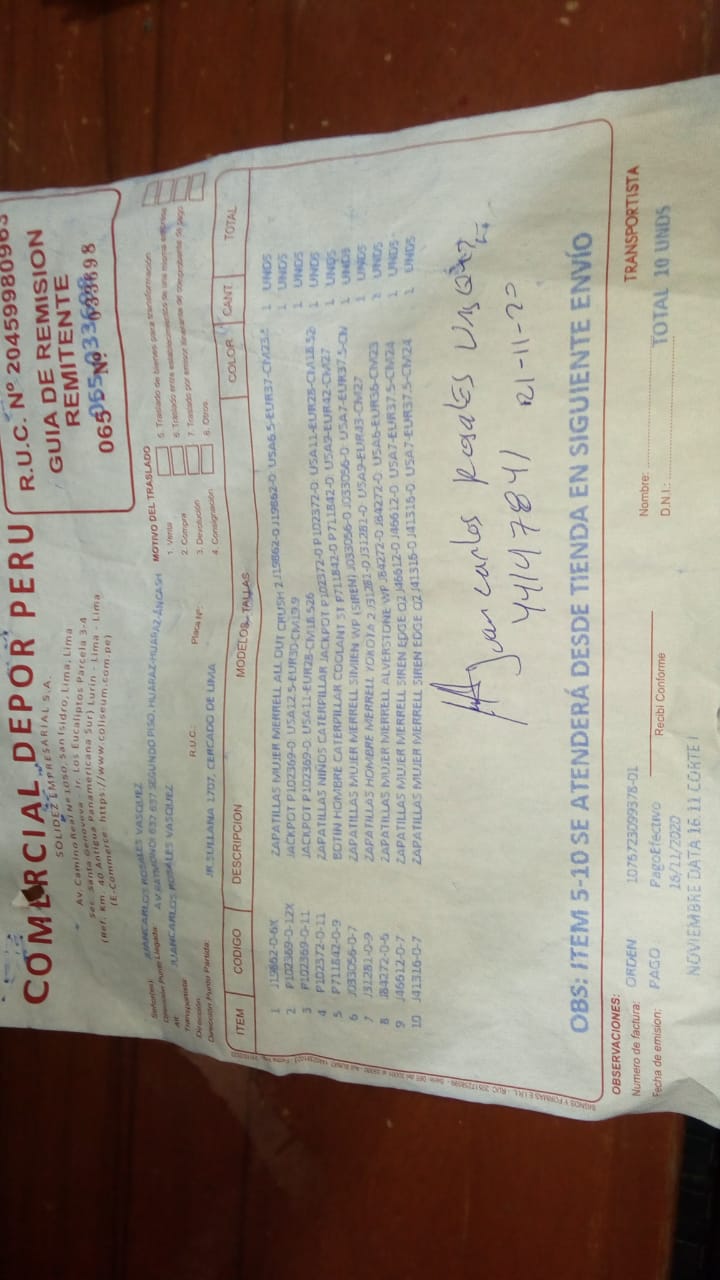 COMERCIAL DEPOR PERU
SOLIDEZ EMPRESARIAL S.A.
Av. Camino Real Nº 1050, San Isidro, Lima, Lima
Sec. Santa Genoveva - Jr. Los Eucaliptos Parcela 3-4
(Ref. Km. 40 Antigua Panamericana Sur) Lurín - Lima - Lima
(E-Commerce: https://www.coliseum.com.pe)
R.U.C. Nº 2045998096
GUIA DE REMISION
REMITENTE
065- Nº 033698
065-033698
Señor(es): JUANCARLOS ROSALES VASQUEZ
Dirección Punto Llegada: AV.RAYMONDI 632 637 SEGUNDO PISO, HUARAZ-HUARAZ-ANCASH
att: JUANCARLOS ROSALES VASQUEZ
Transportista:
Dirección: R.U.C.: Placa Nº:
Dirección Punto Partida: JR.SULLANA 1707, CERCADO DE LIMA
MOTIVO DEL TRASLADO
1. Venta
2. Compra
3. Devolución
4. Consignación
5. Traslado de bienes para transformación
6. Traslado entre establecimientos de una misma empresa
7. Traslado por emisor itinerante de comprobante de pago
8. Otros
ITEM CODIGO DESCRIPCION MODELOS, TALLAS COLOR CANT. TOTAL
1 J19862-0-6X ZAPATILLAS MUJER MERRELL ALL OUT CRUSH 2 J19862-0 J19862-0 USA6.5-EUR37-CM23.5 1 UNDS
2 P102369-0-12X JACKPOT P102369-0 USA12.5-EUR30-CM19.9 1 UNDS
3 P102369-0-11 JACKPOT P102369-0 USA11-EUR28-CM18.526 1 UNDS
4 P102372-0-11 ZAPATILLAS NIÑOS CATERPILLAR JACKPOT P102372-0 P102372-0 USA11-EUR28-CM18.52 1 UNDS
5 P711842-0-9 BOTIN HOMBRE CATERPILLAR COOLANT ST P711842-0 P711842-0 USA9-EUR42-CM27 1 UNDS
6 J033056-0-7 ZAPATILLAS MUJER MERRELL SIMIEN WP (SIREN) J033056-0 J033056-0 USA7-EUR37.5-CM 1 UNDS
7 J31281-0-9 ZAPATILLAS HOMBRE MERRELL YOKOTA 2 J31281-0 J31281-0 USA9-EUR43-CM27 1 UNDS
8 J84272-0-6 ZAPATILLAS MUJER MERRELL ALVERSTONE WP J84272-0 J84272-0 USA6-EUR36-CM23 1 UNDS
9 J46612-0-7 ZAPATILLAS MUJER MERRELL SIREN EDGE Q2 J46612-0 J46612-0 USA7-EUR37.5-CM24 1 UNDS
10 J41316-0-7 ZAPATILLAS MUJER MERRELL SIREN EDGE Q2 J41316-0 J41316-0 USA7-EUR37.5-CM24 1 UNDS
Juan carlos Rosales
44147841
21-11-20
OBS: ITEM 5-10 SE ATENDERÁ DESDE TIENDA EN SIGUIENTE ENVÍO
OBSERVACIONES:
Numero de factura: ORDEN 1076723099378-01
PAGO PagoEfectivo
Fecha de emision: 16/11/2020
NOVIEMBRE DATA 16.11 CORTE I
Recibi Conforme
TRANSPORTISTA
Nombre:
D.N.I.:
TOTAL 10 UNDS